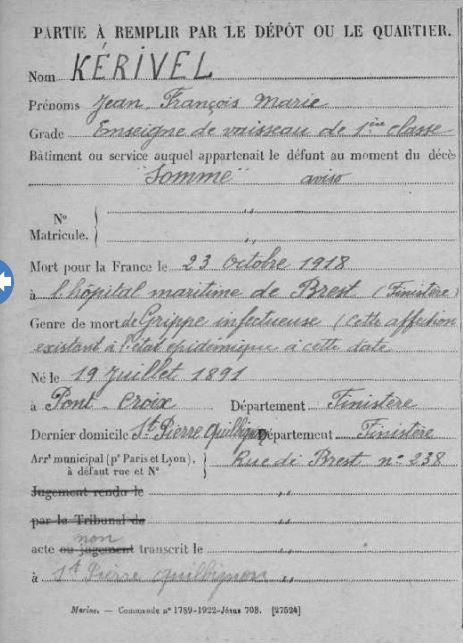 PARTIE À REMPLIR PAR LE DÉPÔT OU LE QUARTIER.
Nom KÉRIVEL
Prénoms Jean François Marie
Grade Enseigne de vaisseau de 1ère classe
Bâtiment ou service auquel appartenait le défunt au moment du décè
"Somme" aviso
N°
Matricule.
Mort pour la France le 23 Octobre 1918
à l'hôpital maritime de Brest (Finistère)
Genre de mort de Grippe infectueuse (Cette affection
existant à l'état épidémique à cette date
Né le 19 Juillet 1891
à Pont-Croix Département Finistère
Dernier domicile St Pierre Quilbignon Département Finistère
Arrt municipal (pr Paris et Lyon), à défaut rue et N° Rue de Brest n° 238
Jugement rendu le
par le Tribunal de
non
acte ou jugement transcrit le
à St Pierre quilbignon
Marine. — Commande n° 1789-1922-Jésus 708. [27524]